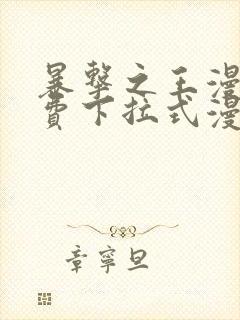 暴擊之王漫
費下拉式漫
章寧旦